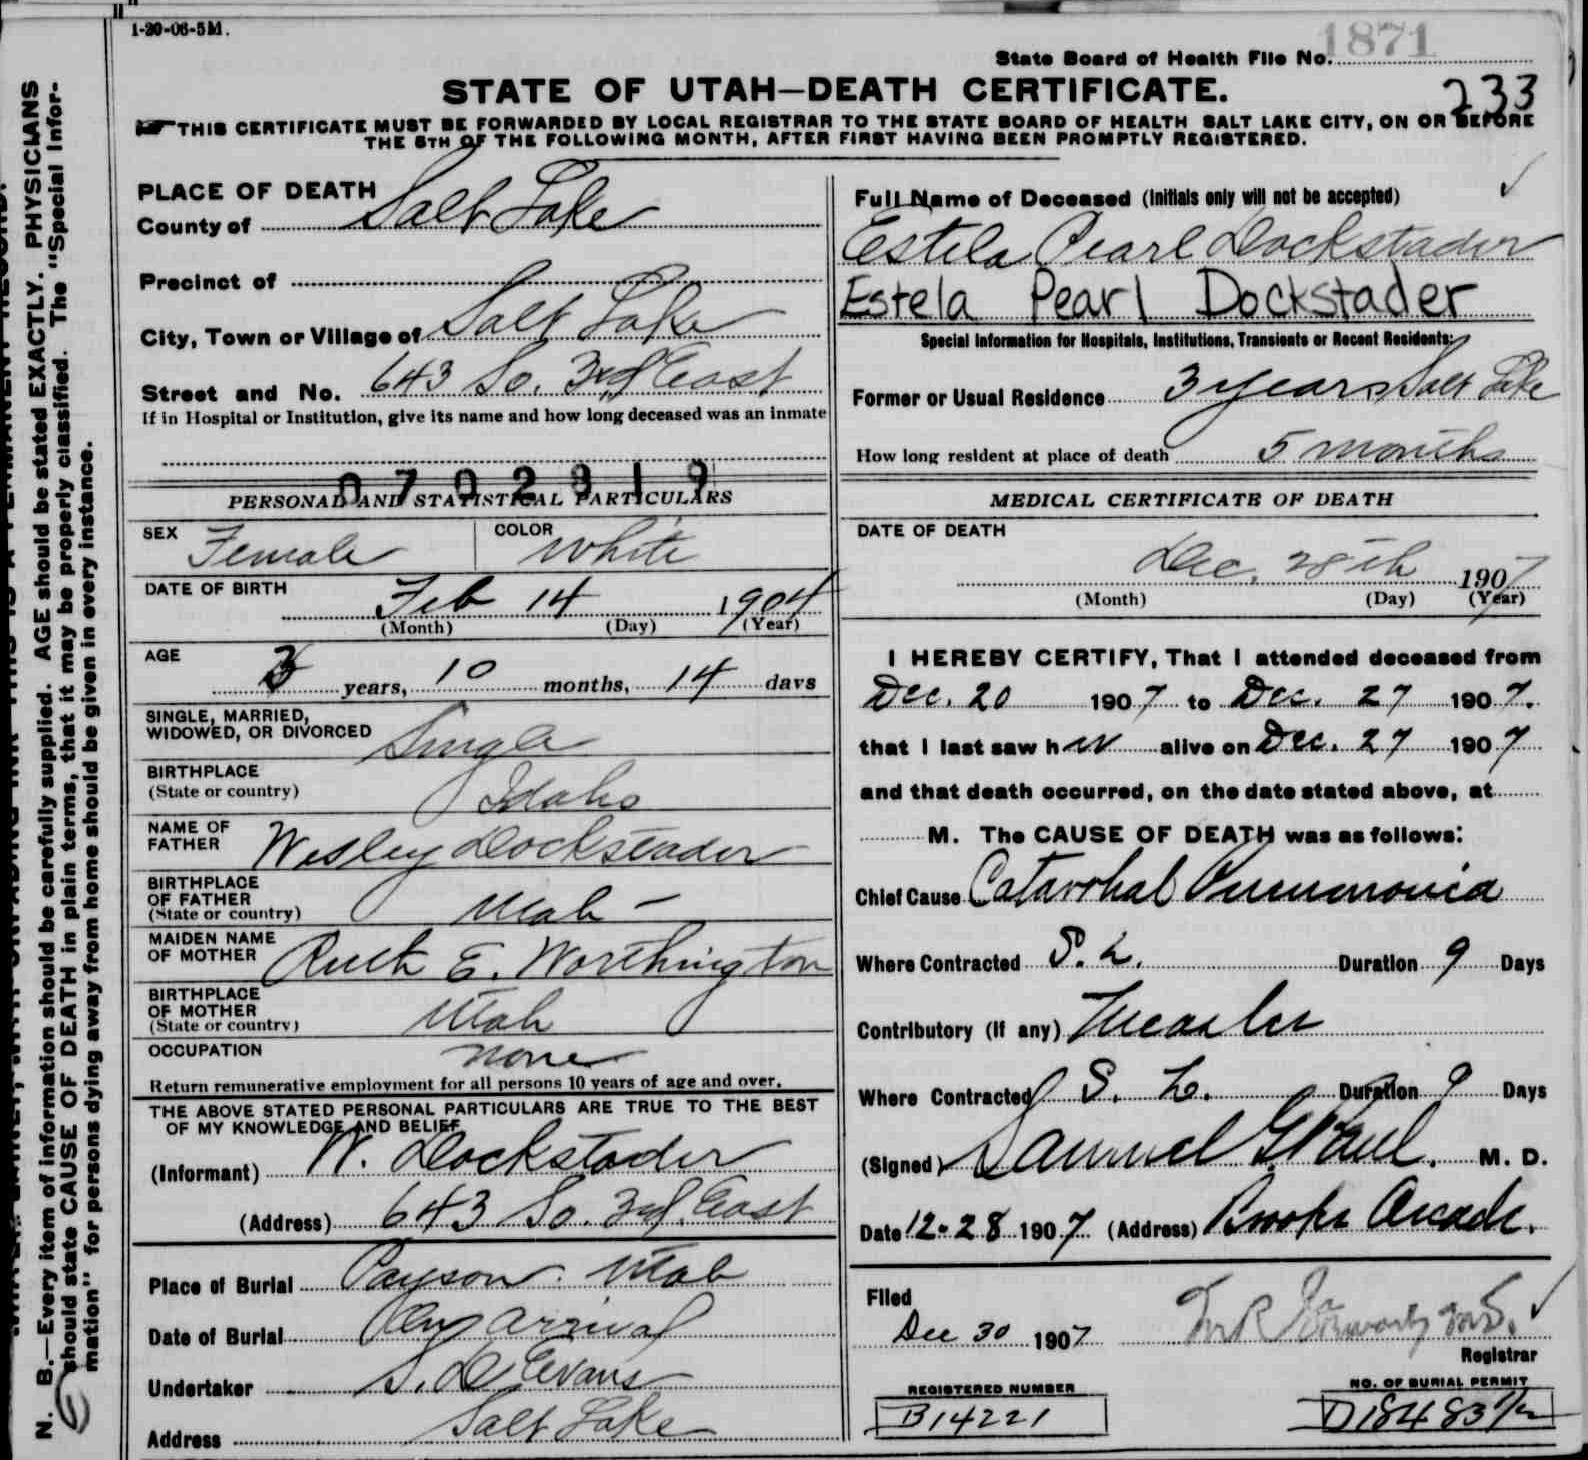 1-20-06-5M.
1871
State Board of Health File No.
STATE OF UTAH—DEATH CERTIFICATE.
233
THIS CERTIFICATE MUST BE FORWARDED BY LOCAL REGISTRAR TO THE STATE BOARD OF HEALTH SALT LAKE CITY, ON OR BEFORE
THE 5TH OF THE FOLLOWING MONTH, AFTER FIRST HAVING BEEN PROMPTLY REGISTERED.
N. B.—Every item of information should be carefully supplied. AGE should be stated EXACTLY. PHYSICIANS
should state CAUSE OF DEATH in plain terms, that it may be properly classified. The "Special Infor-
mation" for persons dying away from home should be given in every instance.
PLACE OF DEATH
County of Salt Lake
Precinct of
City, Town or Village of Salt Lake
Street and No. 643 So. 3rd East
If in Hospital or Institution, give its name and how long deceased was an inmate
0702319
PERSONAL AND STATISTICAL PARTICULARS
SEX Female COLOR White
DATE OF BIRTH
Feb 14 1904
(Month) (Day) (Year)
AGE
3 years, 10 months, 14 days
SINGLE, MARRIED,
WIDOWED, OR DIVORCED Single
BIRTHPLACE
(State or country) Idaho
NAME OF
FATHER Wesley Dockstader
BIRTHPLACE
OF FATHER
(State or country) Utah
MAIDEN NAME
OF MOTHER Ruth E. Worthington
BIRTHPLACE
OF MOTHER
(State or country) Utah
OCCUPATION none
Return remunerative employment for all persons 10 years of age and over.
THE ABOVE STATED PERSONAL PARTICULARS ARE TRUE TO THE BEST
OF MY KNOWLEDGE AND BELIEF
(Informant) W. Dockstader
(Address) 643 So. 3rd. East
Place of Burial Payson. Utah
Date of Burial On arrival
Undertaker S. D Evans
Address Salt Lake
Full Name of Deceased (Initials only will not be accepted)
Estela Pearl Dockstader
Estela Pearl Dockstader
Special Information for Hospitals, Institutions, Transients or Recent Residents:
Former or Usual Residence 3 years Salt Lake
How long resident at place of death 5 months
MEDICAL CERTIFICATE OF DEATH
DATE OF DEATH
Dec. 28th 1907
(Month) (Day) (Year)
I HEREBY CERTIFY, That I attended deceased from
Dec. 20 1907 to Dec. 27 1907.
that I last saw her alive on Dec. 27 1907
and that death occurred, on the date stated above, at
M. The CAUSE OF DEATH was as follows:
Chief Cause Catarrhal Pneumonia
Where Contracted S. L. Duration 9 Days
Contributory (If any) Measles
Where Contracted S. L. Duration 9 Days
(Signed) Samuel G. Paul. M. D.
Date 12-28 1907 (Address) Brooks Arcade.
Filed
Dec 30 1907
Registrar
REGISTERED NUMBER
B14221
NO. OF BURIAL PERMIT
D18483 1/2